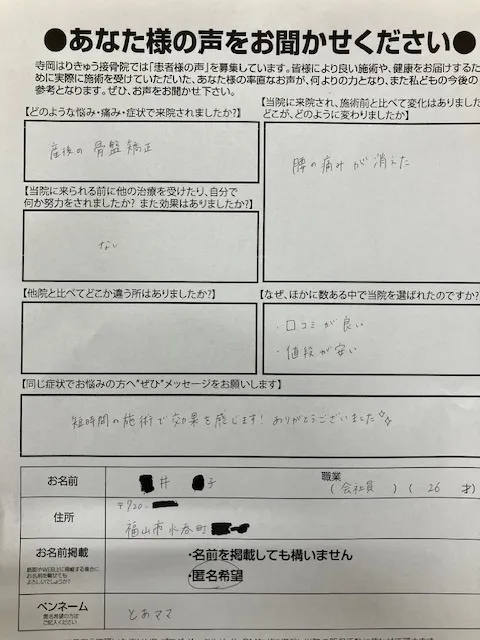 ●あなた様の声をお聞かせください●
寺岡はりきゅう接骨院では「患者様の声」を募集しています。皆様により良い施術や、健康をお届けするた
めに実際に施術を受けていただいた、あなた様の率直なお声が、何よりの力となり、また私どもの今後の
参考となります。ぜひ、お声をお聞かせ下さい。
【どのような悩み・痛み・症状で来院されましたか?】
産後の骨盤矯正
【当院に来院され、施術前と比べて変化はありました
どこが、どのように変わりましたか】
腰の痛みが消えた
【当院に来られる前に他の治療を受けたり、自分で
何か努力をされましたか? また効果はありましたか?】
ない
【他院と比べてどこか違う所はありましたか?】
【なぜ、ほかに数ある中で当院を選ばれたのですか?
・口コミが良い
・値段が安い
【同じ症状でお悩みの方へ"ぜひ"メッセージをお願いします】
短時間の施術で効果を感じます!ありがとうございました
お名前
井 子
職業
(会社員)(26才)
住所
〒720-
福山市水呑町
お名前掲載
紙面やWEB上に掲載する場合に
お名前を載せても
よろしいでしょうか?
・名前を掲載しても構いません
・匿名希望
ペンネーム
匿名希望の方は
ご記入ください
とあママ